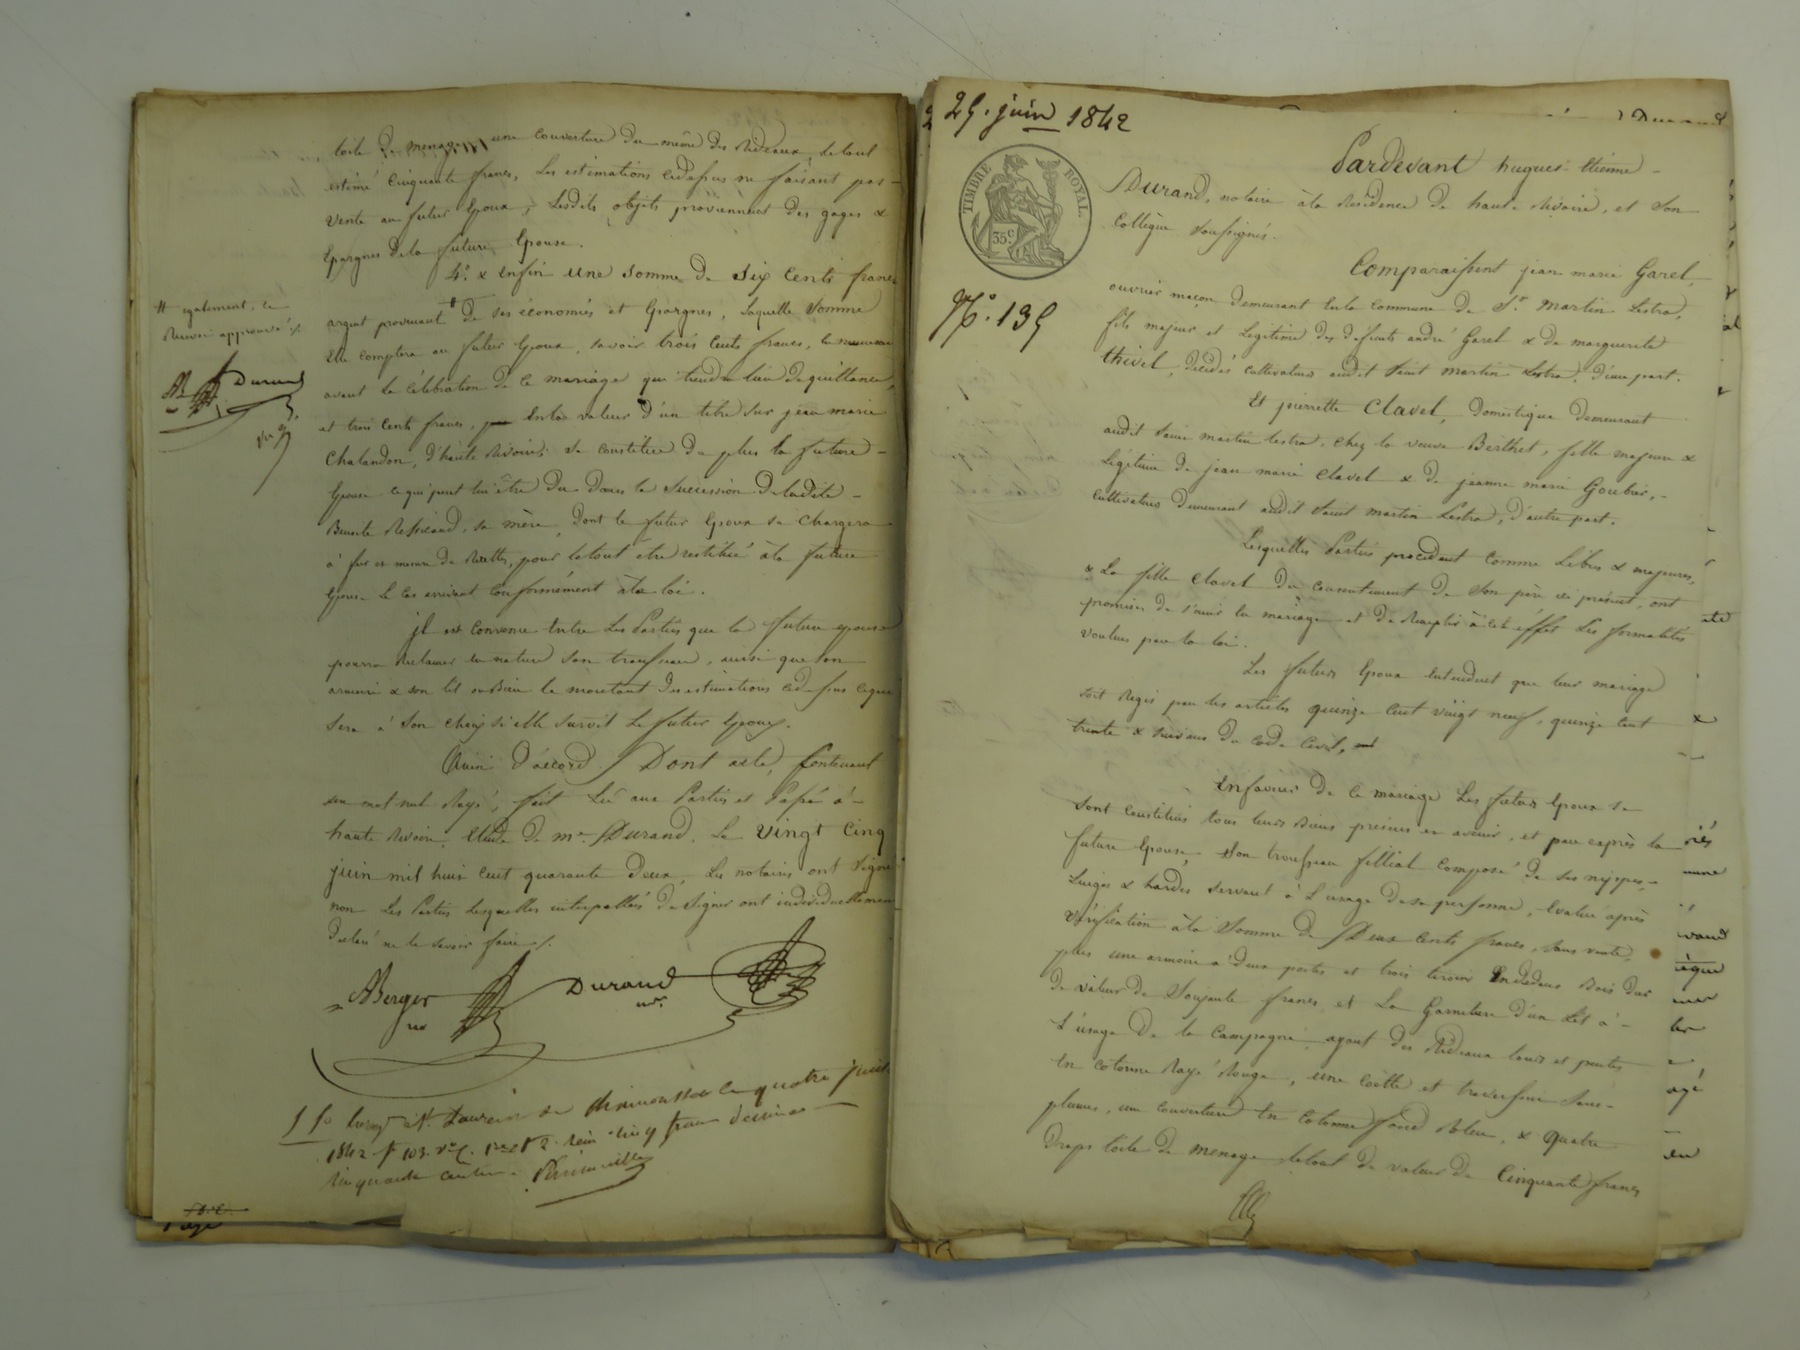 toile de menage, une couverture du même des Rideaux, le tout
estimé cinquante francs, Les estimations cidessus ne faisant pas
vente au futur Epoux, Lesdits objets proviennent des gages &
Epargnes de la future Epouse.
4° & enfin une somme de six cents francs
argent provenant # de ses économies et Epargnes, Laquelle somme
Elle comptera au futur Epoux, savoir trois cents francs,
avant la célébration de ce mariage qui tiendra lieu de quittance,
et trois cents francs, en la valeur d'un titre sur jean marie
Chalandon, d'haute Rivoire; se constitue de plus la future
Epouse ce qui peut lui être du dans la Succession de ladite
Benoite sa mère, dont le futur Epoux se chargera
à fur et mesure de Recettes, pour le tout être restitué à la future
Epouse le cas arrivant conformément à la loi.
jl est convenu Entre Les Parties que la future epouse
pourra Reclamer en nature son trousseau, ainsi que son
armoire & son lit ou bien le montant des estimations cidessus ce qui
sera à son choix si elle survit le futur Epoux.
Ainsi d'accord / Dont acte, Contenant
un mot nul Rayé, fait Lu aux Parties et Passé à
haute Rivoire, Etude de me Durand, Le vingt cinq
juin mil huit cent quarante deux, Les notaires ont signé
non Les Parties Lesquelles interpellées de signer ont individuellement
déclaré ne le savoir faire /.
# egalement, ce
Renvoi approuvé /.
AB Durand
ABerger
Durand
nre
Enreg. à St. Laurent de Chamousset le quatre juillet
1842 f° 103 vo c. cinq francs décimes
cinquante centimes.
29. juin 1842
TIMBRE ROYAL.
35c
No. 139
Pardevant hugues étienne
Durand, notaire à la Residence de haute Rivoire, et son
Collègue soussignés.
Comparaissent jean marie Garel,
ouvrier maçon demeurant En la commune de St. Martin Lestra,
fils majeur et Légitime des defunts andré Garel & de marguerite
thivel, décédés cultivateurs audit Saint Martin Lestra, d'une part.
Et pierrette Clavel, domestique demeurant
audit Saint martin lestra, chez la veuve Berthet, fille majeure &
Légitime de jean marie Clavel & de jeanne marie
cultivateurs demeurant audit Saint Martin Lestra, d'autre part.
Lesquelles Parties procedant comme Libres & majeures,
& La fille Clavel du consentement de Son père ici présent, ont
promises de s'unir en mariage et de Remplir à cet effet Les formalités
voulues par la loi.
Les futurs Epoux entendent que leur mariage
soit Regis par les articles quinze cent vingt neuf, quinze cent
trente & suivans du code civil,
En faveur de ce mariage Les futurs Epoux se
sont constitués tous leurs Biens présens et avenir, et par exprès la
future Epouse, Son trousseau fillial composé de ses nippes,
Linges & hardes servant à L'usage de sa personne, Evalué après
vérification à la Somme de Deux Cents francs, sans vente,
plus une armoire à deux portes et trois tiroirs En dedans Bois dur
de valeur de Soixante francs, et La Garniture d'un Lit à
l'usage de la Campagne, ayant des Rideaux tours et pentes
En cotonne Rayé Rouge, une Coëtte et traversin sans
plumes, une couverture En Cotonne fond Bleu, & Quatre
Draps toile de menage, le tout de valeur de Cinquante francs